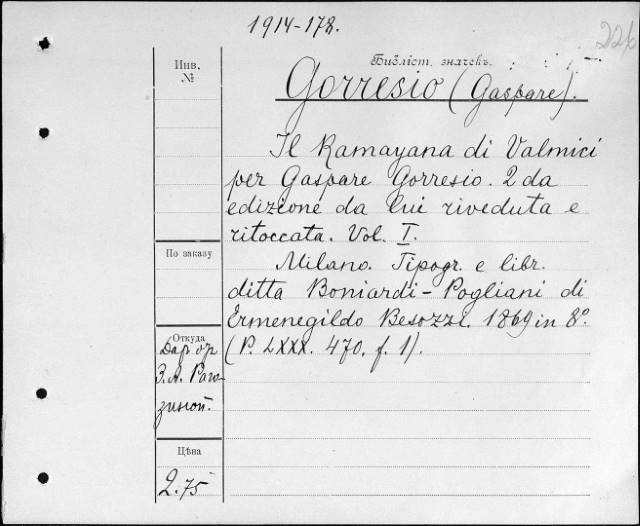 1914-178.
226
Инв.
№
Библіст. значекъ.
Gorresio (Gaspare).
Il Ramayana di Valmici
per Gaspare Gorresio. 2da
edizione da lui riveduta e
ritoccata. Vol. I.
По заказу
Milano. Tipogr. e libr.
ditta Boniardi-Pogliani di
Ermenegildo Besozzi. 1869 in 8º.
(P. LXXX. 470, f. 1).
Откуда
Дар
Цѣна
2.75